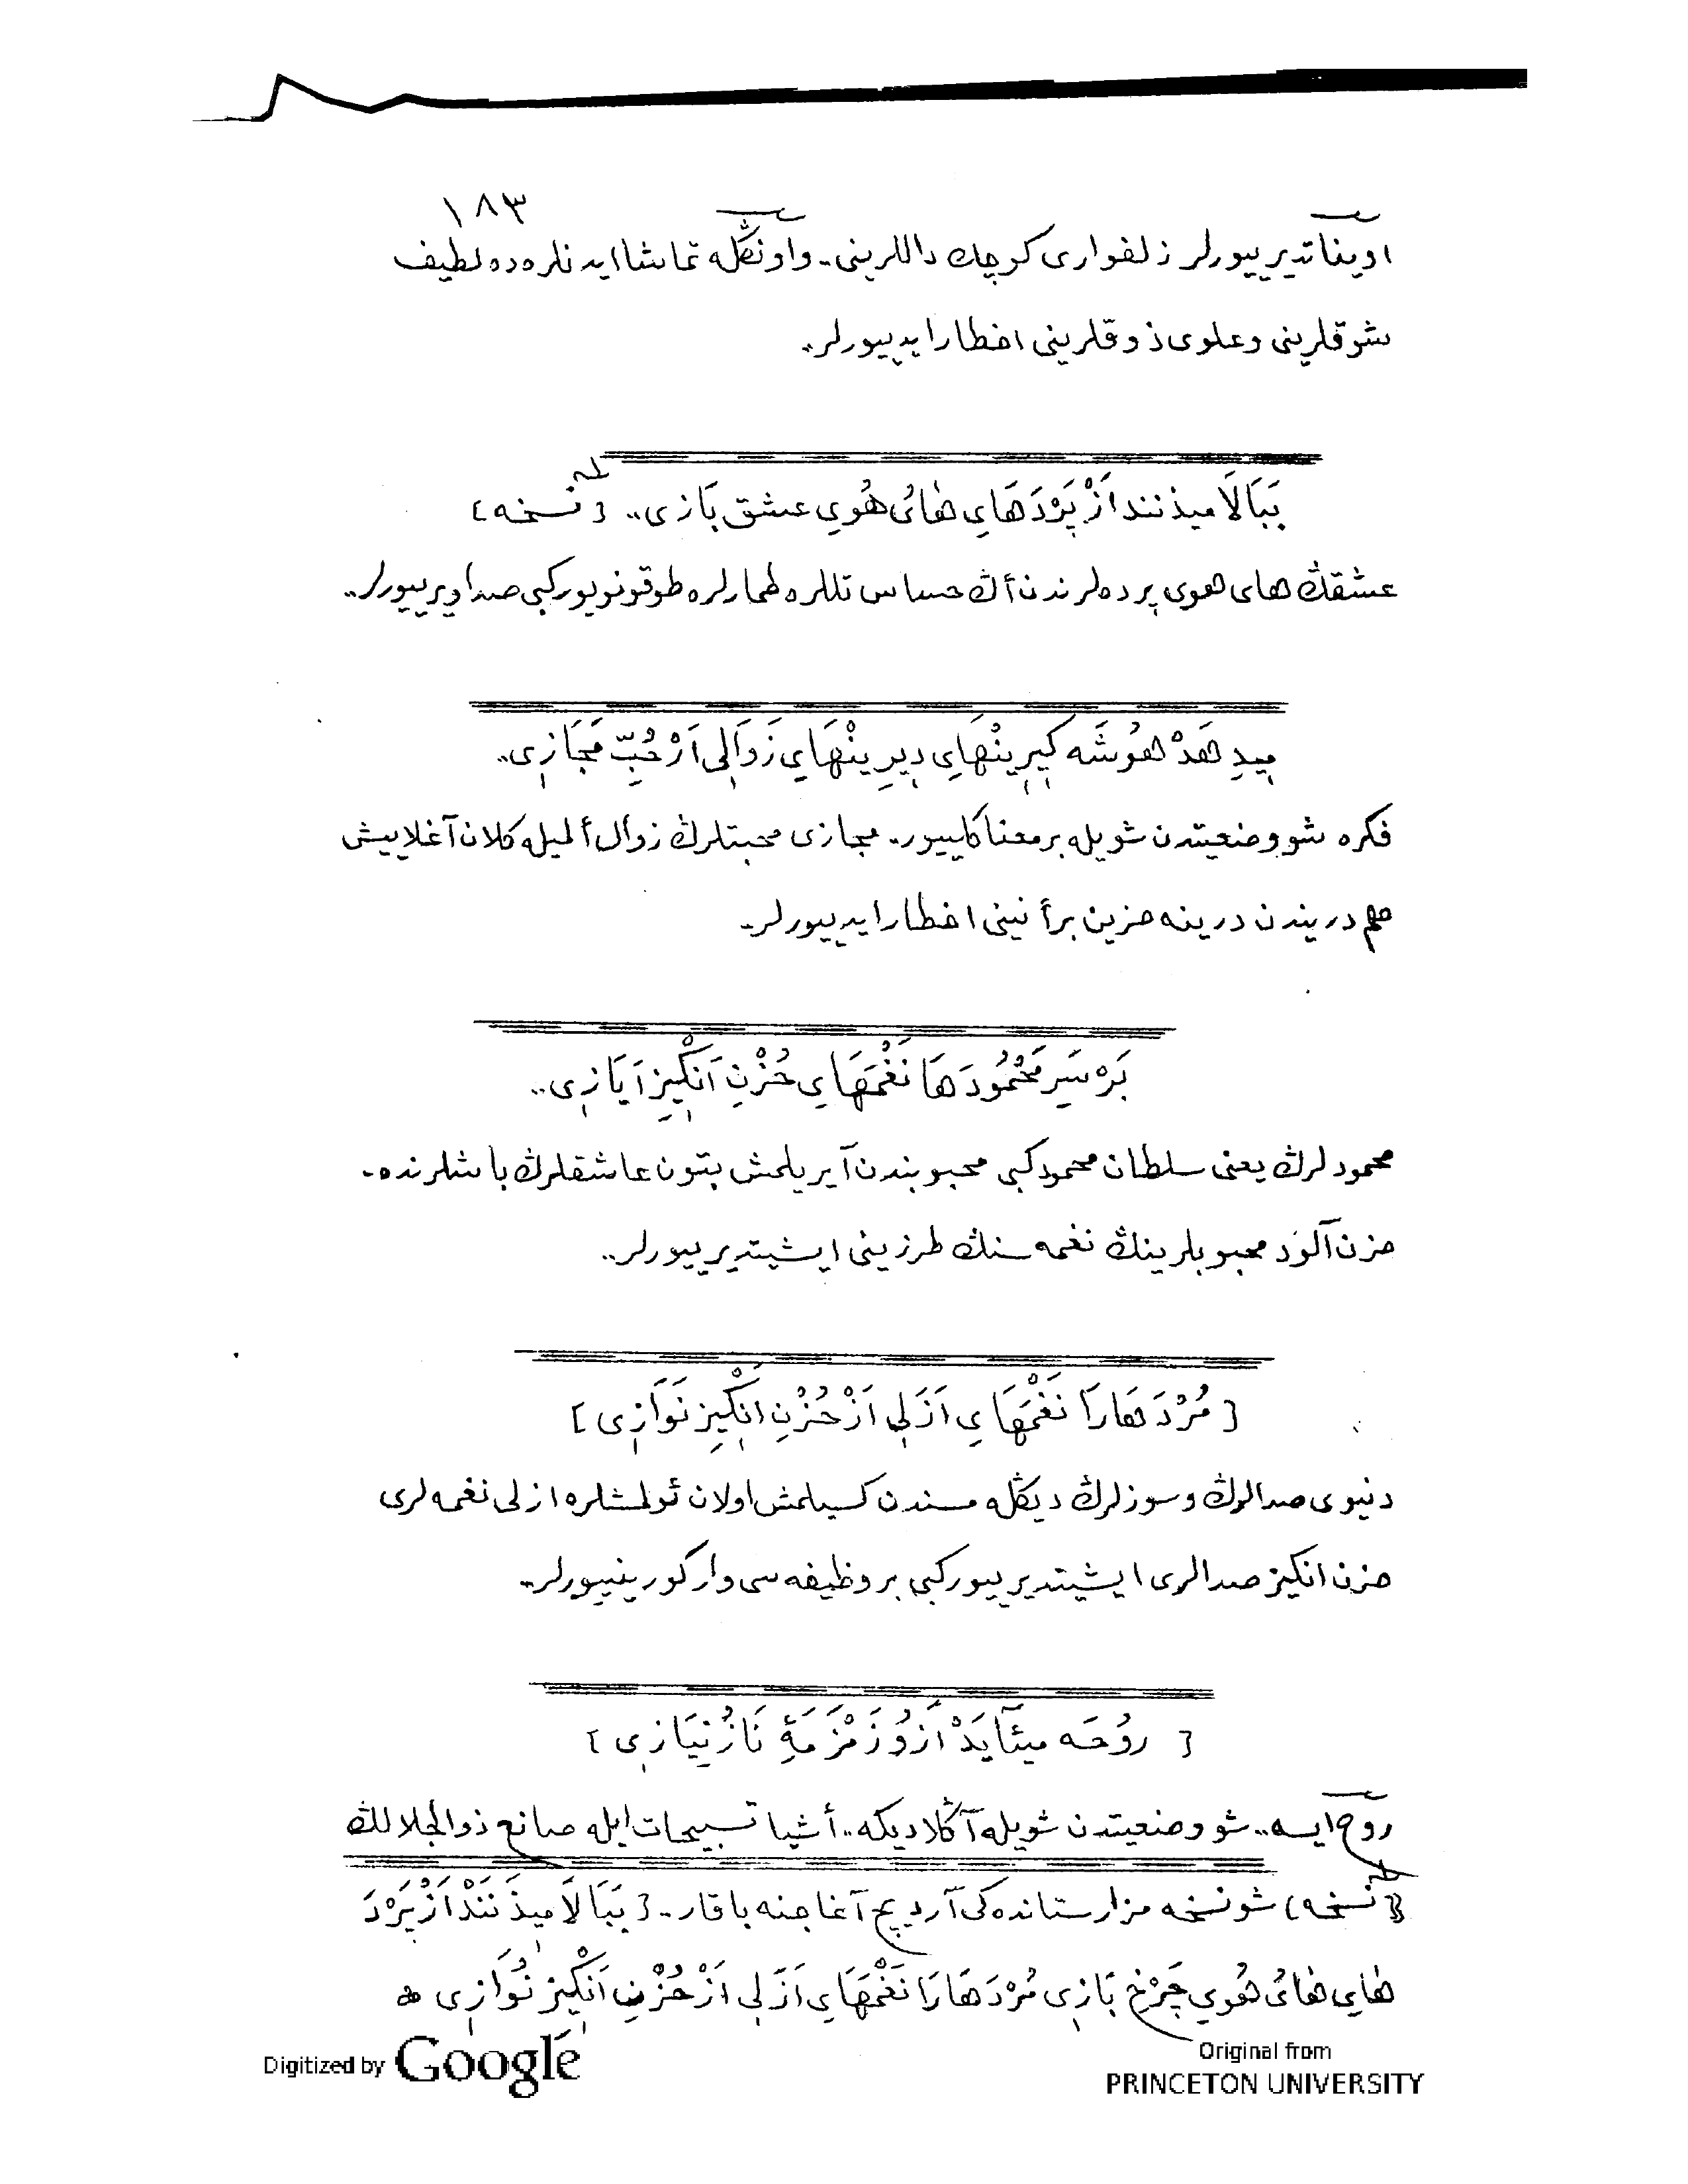 ١٨٣
اویناتدیرییورلر زلفواری کوچك داللرینی.. واونڭله تماشا ایدنلره ده لطیف
شوقلرینی وعلوی ذوقلرینی اخطار ایدییورلر..
بَبَالَا میذنند اَزْ پَرْدَهَايِ هَائُ هُويِ عشق بَازی.. [نسخه]
عشقڭ های هوی پرده لرندن أڭ حساس تللره طمارلره طوقونویور کبی صدا ویرییورلر..
مِیدِهَدْ هُوشَه کِیرِینْهَايِ دِیرِینْهَايِ زَوَالِی اَزْ حُبِّ مَجَازِی..
فکره شو وضعیتدن شویله بر معنا کلییور.. مجازی محبتلرڭ زوأل ألمیله کلان آغلاییش
هم دریندن درینه حزین بر أنینی اخطار ایدییورلر..
بَرْ سَرِ مَحْمُودَهَا نَغْمَهَايِ حُزْنِ اَنْکِیزِ اَیَازِی..
محمودلرڭ یعنی سلطان محمود کبی محبوبندن آیریلمش بتون عاشقلرڭ باشلرنده..
حزن آلود محبوبلرینڭ نغمه سنڭ طرزینی ایشیتدیرییورلر..
[ مُرْدَهَارَا نَغْمَهَايِ اَزَلِی اَزْ حُزْنِ اَنْکِیزِ نَوَازِی ]
دنیوی صدالرڭ وسوزلرڭ دیڭله مسندن کسیلمش اولان ئولمشلره ازلی نغمه لری
حزن انکیز صدالری ایشیتدیرییور کبی بر وظیفه سی وار کورینییورلر..
[ رُوحَه میئآیَدْ اَزُو زَمْزَمَۀِ نَازُ نِیَازِی ]
روح ایسه.. شو وضعیتدن شویله آڭلادیکه.. أشیا تسبیحات ایله صانع ذوالجلالڭ
(نسخه) شو نسخه مزارستانده کی آردیچ آغاجنه باقار.. [ بَبَالَا مِیذَنَنْدْ اَزْ پَرْدَ
هَايِ هَائُ هُويِ چَرْخِ بَازِی مُرْدَهَارَا نَغْمَهَايِ اَزَلِی اَزْ حُزْنِ اَنْکِیزِ نُوَازِی
Digitized by Google
Original from
PRINCETON UNIVERSITY